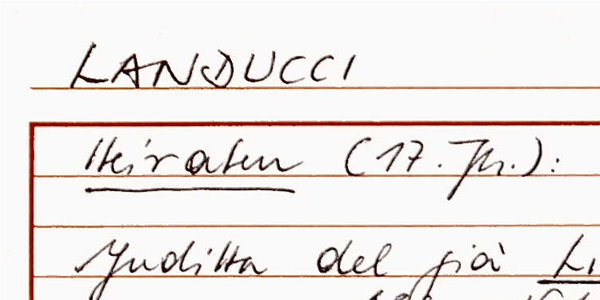 LANDUCCI
Heiraten (17. Jh.):
Juditta del già